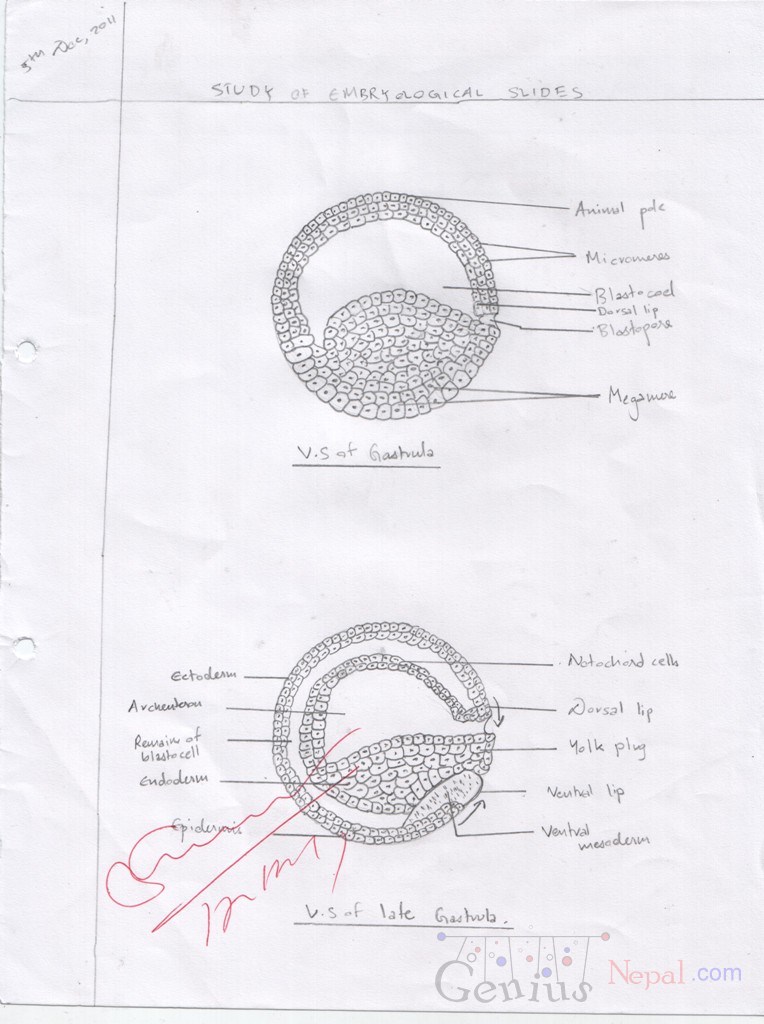 5th Dec, 2011
STUDY OF EMBRYOLOGICAL SLIDES
Animal pole
Micromeres
Blastocoel
Dorsal lip
Blastopore
Megamere
V.S of Gastrula
Ectoderm
Archenteron
Remain of
blastocell
Endoderm
Epidermis
Notochord cells
Dorsal lip
Yolk plug
Ventral lip
Ventral
mesoderm
V.S of late Gastrula.
Genius Nepal.com